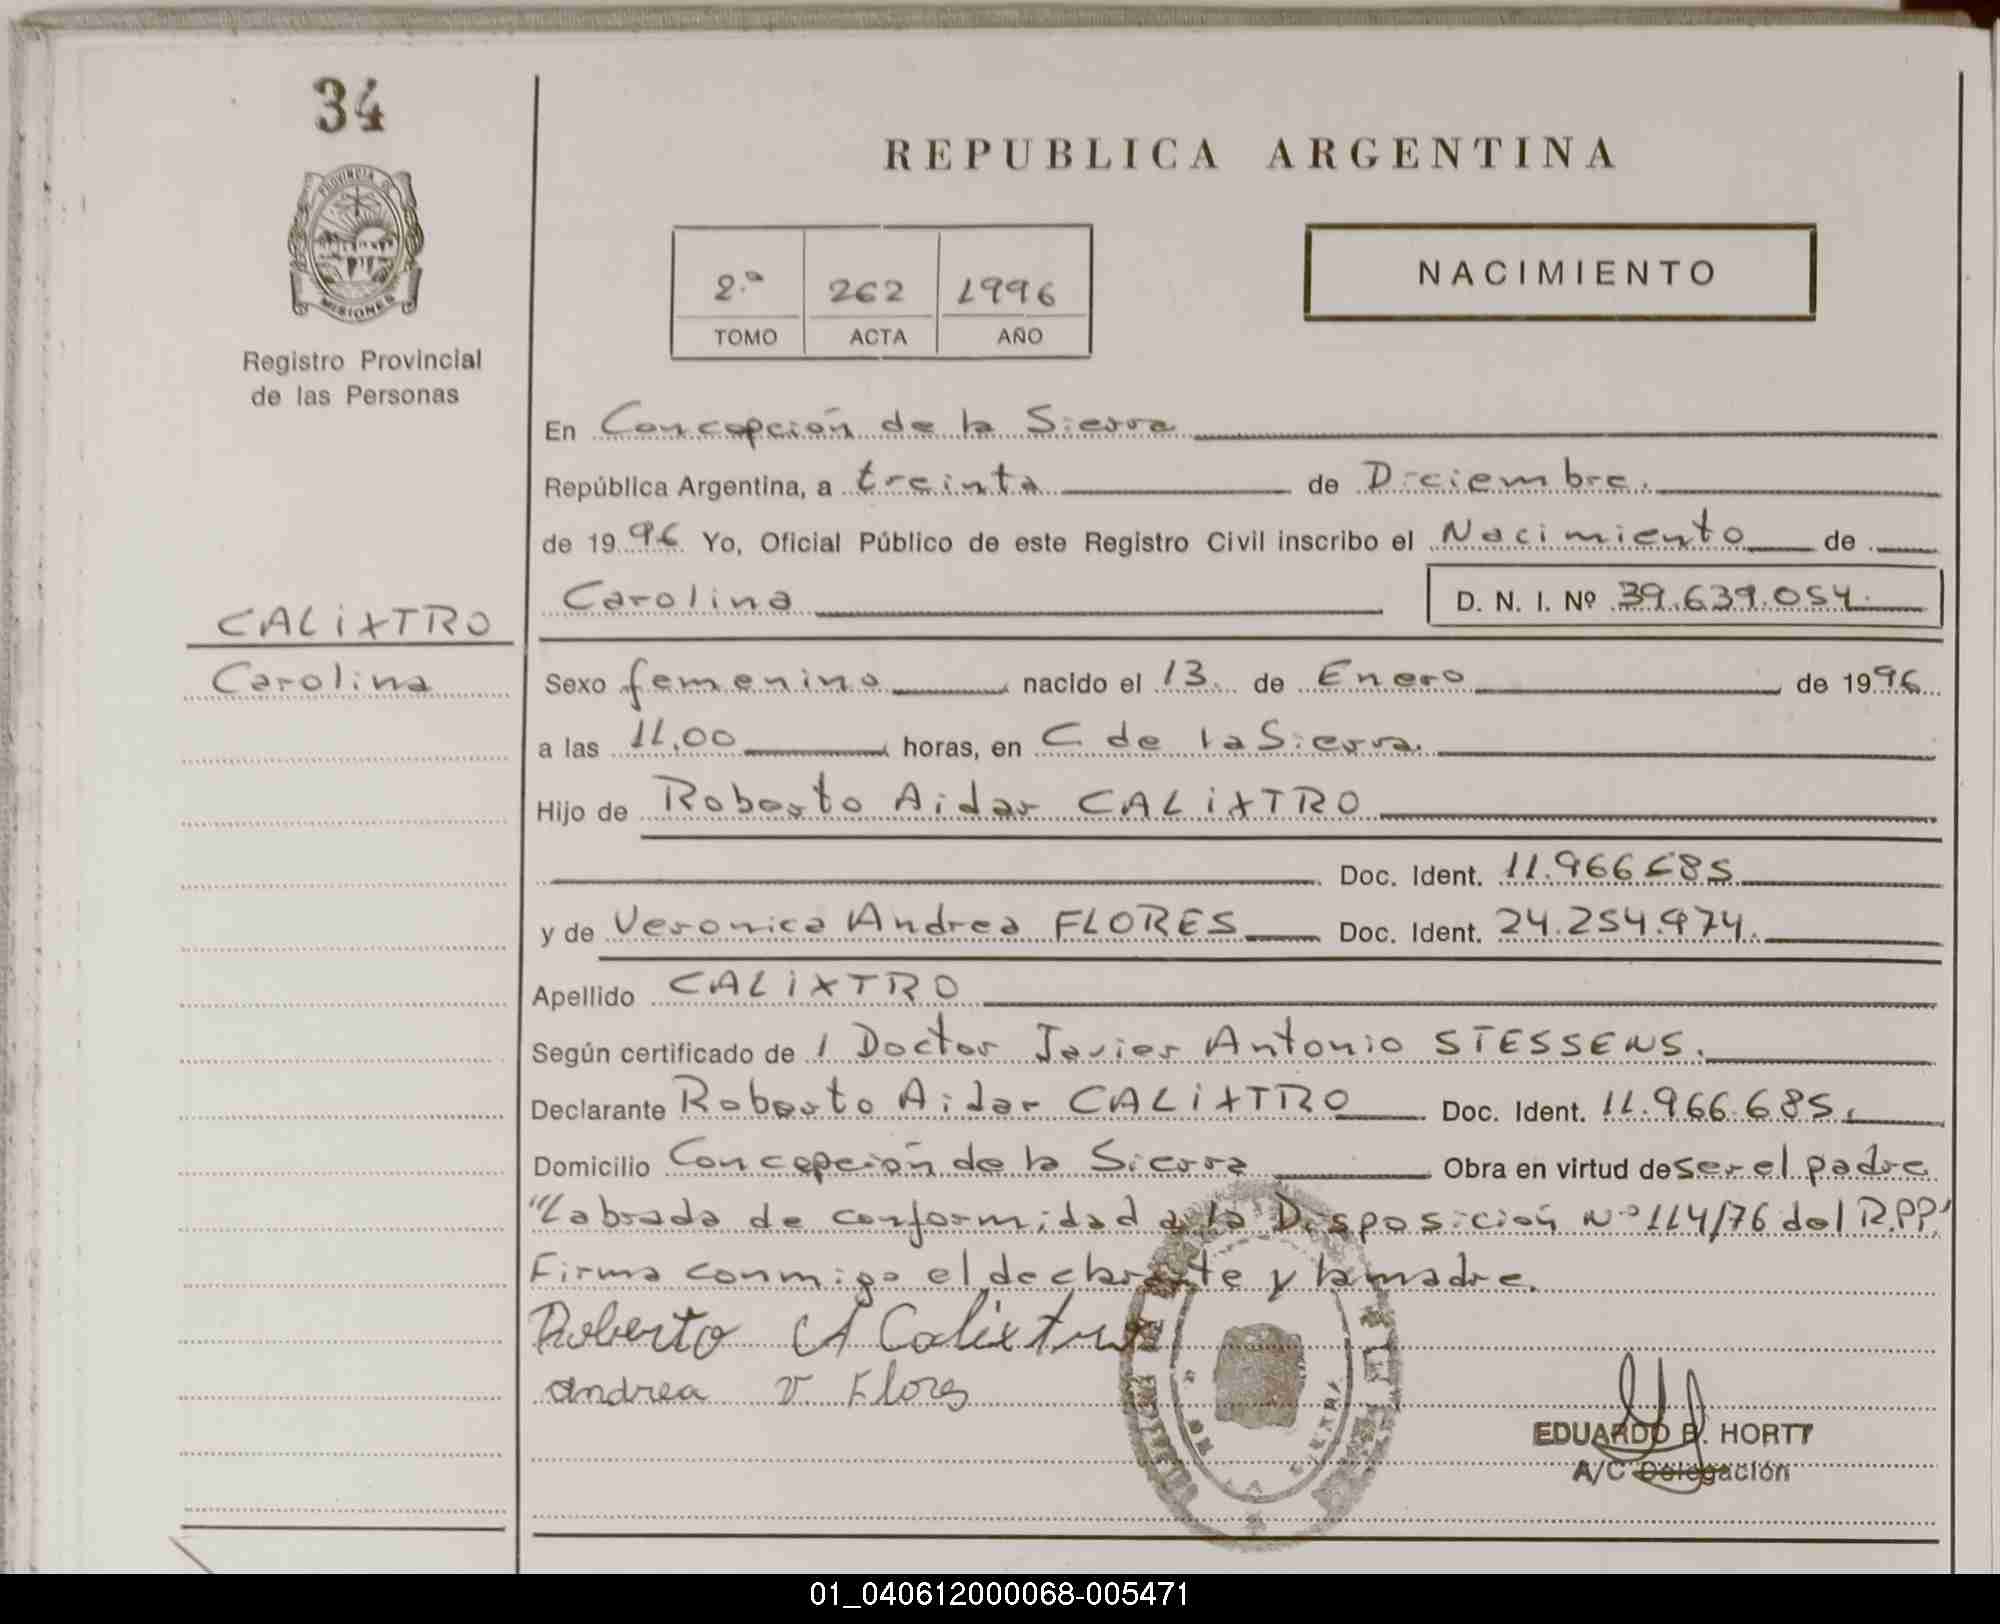 34
REPUBLICA ARGENTINA
PROVINCIA DE
MISIONES
Registro Provincial
de las Personas
2.ª 262 1996
TOMO ACTA AÑO
NACIMIENTO
En Concepción de la Sierra
República Argentina, a treinta de Diciembre.
de 1996 Yo, Oficial Público de este Registro Civil inscribo el Nacimiento de
Carolina D. N. I. Nº 39.639.054.
CALiXTRO
Carolina
Sexo femenino nacido el 13. de Enero de 1996
a las 11.00 horas, en C de la Sierra.
Hijo de Roberto Aidar CALiXTRO
Doc. Ident. 11.966685
y de Veronica Andrea FLORES Doc. Ident. 24.254.974.
Apellido CALiXTRO
Según certificado de / Doctor Javier Antonio STESSENS.
Declarante Roberto Aidar CALiXTRO Doc. Ident. 11.966.685.
Domicilio Concepción de la Sierra Obra en virtud de ser el padre
"Labrada de conformidad a la Disposición Nº 114/76 del R.P.P."
Firma conmigo el declarante y la madre.
Roberto A Calixtro
andrea v. Flores
EDUARDO R. HORTT
A/C Delegación
01_040612000068-005471